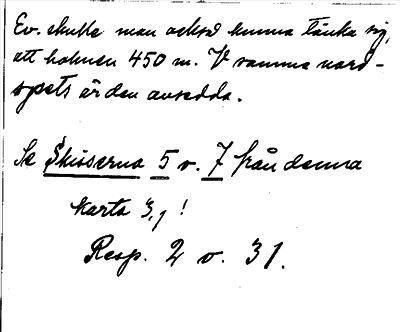 Ev. skulle man också kunna tänka sig,
att holmen 450 m. V samma nord-
spets är den avsedda.
Se Skisserna 5 o. 7 från denna
karta 3,1!
Resp. 2 o. 31.